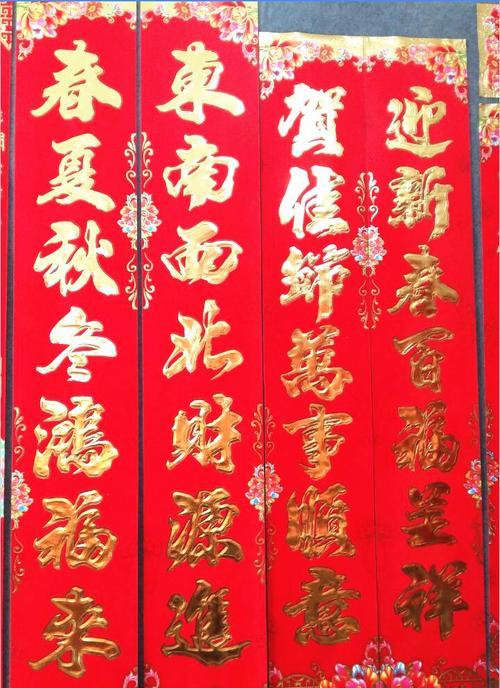 迎新春百福呈祥
賀佳節萬事順意
東南西北財源進
春夏秋冬鴻福來